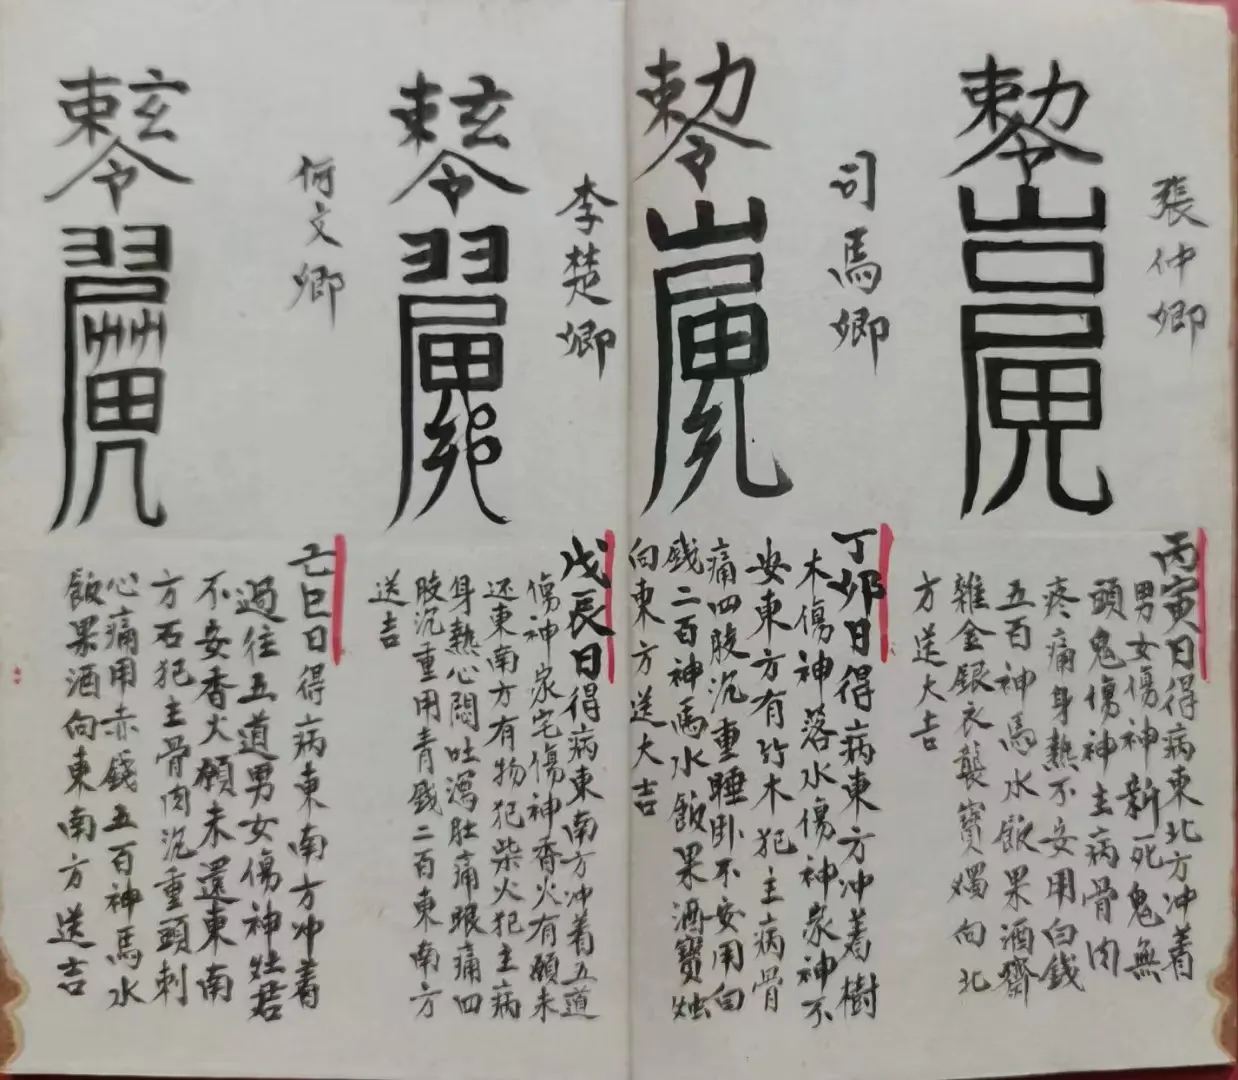 張仲卿
丙寅日得病東北方冲着
男女傷神新死鬼無
頭鬼傷神主病骨肉
疼痛身熱不安用白錢
五百神馬水飯果酒齋
雜金銀衣襲寶燭向北
方送大吉
司馬卿
丁卯日得病東方冲着樹
木傷神落水傷神家神不
安東方有竹木犯主病骨
痛四肢沉重睡卧不安用白
錢二百神馬水飯果酒寶烛
向東方送大吉
李楚卿
戊辰日得病東南方冲着五道
傷神家宅傷神香火有願未
还東南方有物犯柴火犯主病
身熱心悶吐瀉肚痛眼痛四
肢沉重用青錢二百東南方
送吉
何文卿
己巳日得病東南方冲着
過往五道男女傷神灶君
不安香火願未還東南
方石犯主骨肉沉重頭刺
心痛用赤錢五百神馬水
飯果酒向東南方送吉